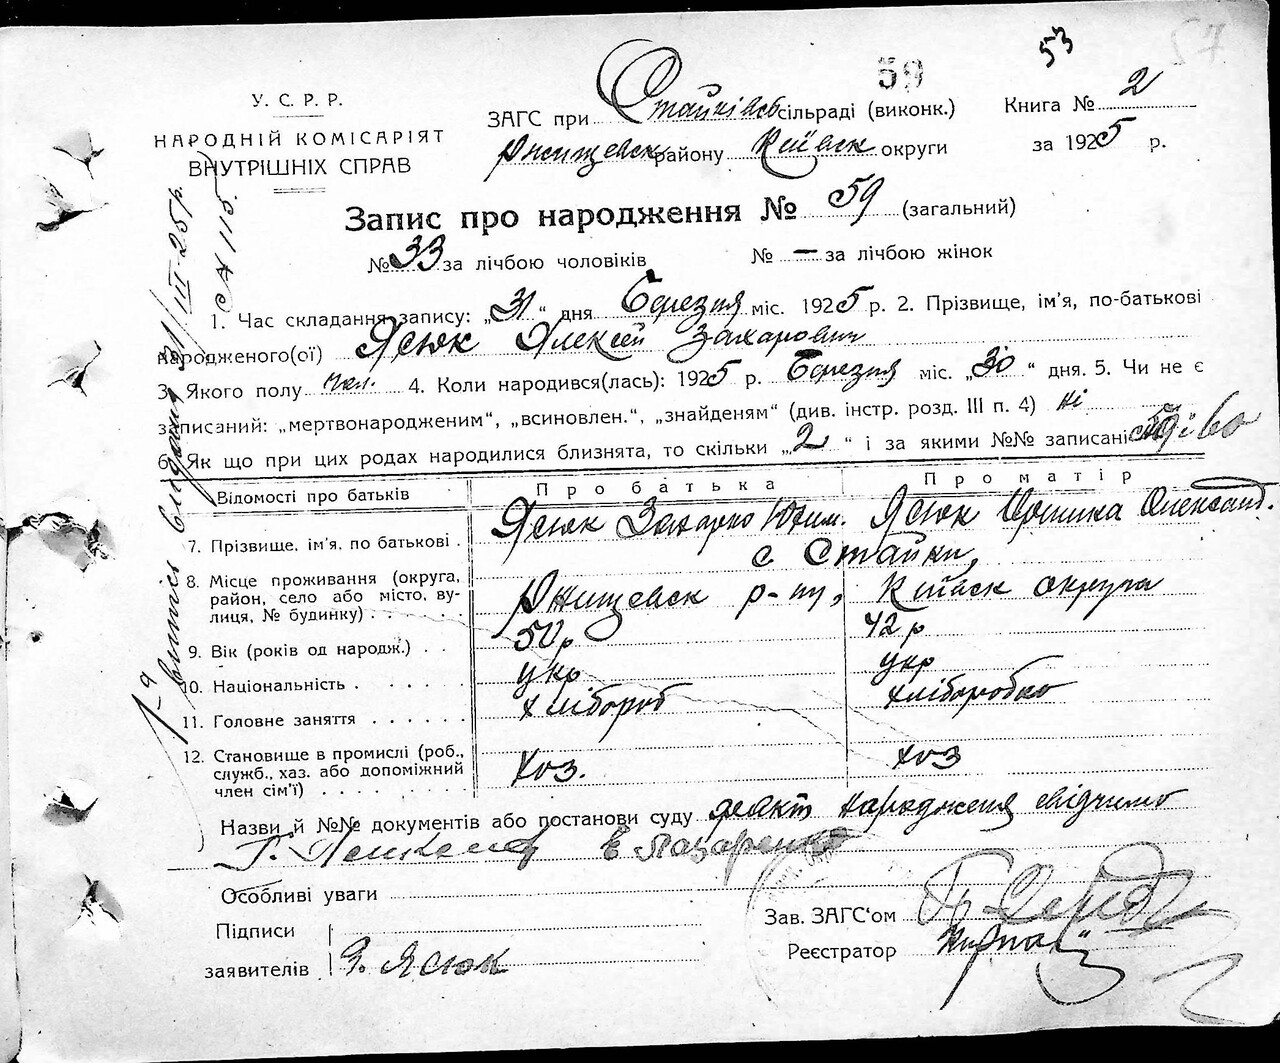 53
57
59
У. С. Р. Р.
НАРОДНІЙ КОМІСАРІЯТ
ВНУТРІШНІХ СПРАВ
ЗАГС при Стайківській сільраді (виконк.)
Ржищевськ району Київськ округи
Книга № 2
за 1925 р.
Запис про народження № 59 (загальний)
№ 33 за лічбою чоловіків № — за лічбою жінок
1. Час складання запису: „31“ дня Березня міс. 1925 р. 2. Прізвище, ім'я, по-батькові
народженого(ої) Ясюк Алексей Захарович
3. Якого полу чол. 4. Коли народився(лась): 1925 р. Березня міс. „30“ дня. 5. Чи не є
записаний: „мертвонародженим“, „всиновлен.“, „знайденям“ (див. інстр. розд. III п. 4) ні
6. Як що при цих родах народилися близнята, то скільки „2“ і за якими №№ записані 59 і 60
Відомості про батьків Про батька Про матір
7. Прізвище, ім'я, по батькові . Ясюк Захарко Юхим. Ясюк Олександ.
с Стайки,
8. Місце проживання (округа, район, село або місто, вулиця, № будинку) . . Ржищевск р-ну, Київск округа
9. Вік (років од народж.) . . 50 р 42 р
10. Національність . . . . . укр укр
11. Головне заняття . . . . . . хлібороб хліборобка
12. Становище в промислі (роб., служб., хаз. або допоміжний член сім'ї) . . . . . . . хоз. хоз
Назви й №№ документів або постанови суду факт народження свідчимо
Г. Лазаренко
Особливі уваги
Підписи
заявителів З. Ясюк
Зав. ЗАГС'ом
Реєстратор
1-а витпіс видана 31/III-25 р.
№ 115